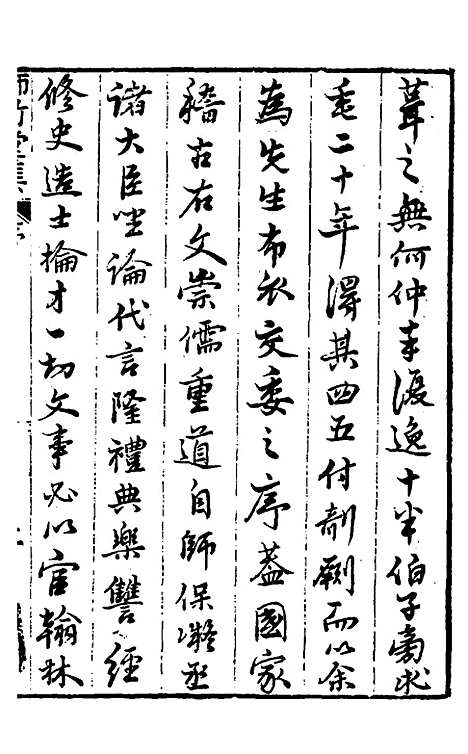 葺之無何仲奉復逸十半伯子旁求
垂二十年得其四五付剞劂而以余
為先生布衣交委之序蓋國家
稽古右文崇儒重道自師保凝丞
諸大臣坐論代言隆禮典樂讐經
修史造士掄才一切文事必以官翰林